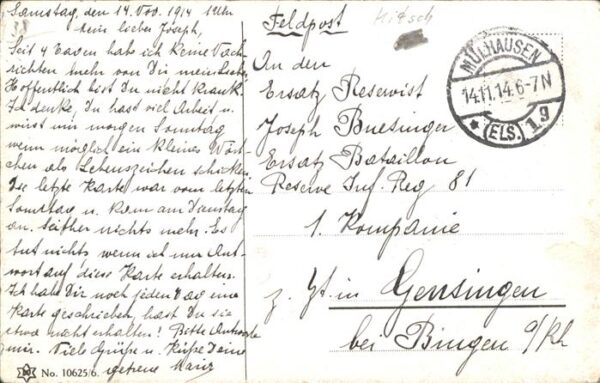 Samstag, den 14. Nov. 1914 1 Uhr
Mein lieber Joseph,
Seit 4 Tagen hab ich keine Nach-
richten mehr von Dir mein Lieber
Hoffentlich bist Du nicht krank.
Ich denke, Du hast viel Arbeit u.
wirst mir morgen Sonntag
wenn möglich ein kleines Wört-
chen als Lebenszeichen schicken.
Die letzte Karte war vom letzten
Sonntag u. kam am Dienstag
an. Seither nichts mehr. Es
tut nichts wenn ich nur Ant-
wort auf diese Karte erhalten.
Ich hab Dir noch jeden Tag eine
Karte geschrieben, hast Du sie
etwa nicht erhalten? Bitte Antworte
mir. Viele Grüße u. Küße Deine
getreue
No. 10625/6.
Feldpost
An den
Ersatz Reservist
Joseph Buesinger
Ersatz Bataillon
Reserve Inf. Reg 81
1. Kompanie
z. Zt. in Gensingen
bei Bingen a/Rh
MÜLHAUSEN
14.11.14.6-7N
* (ELS.) 1.g